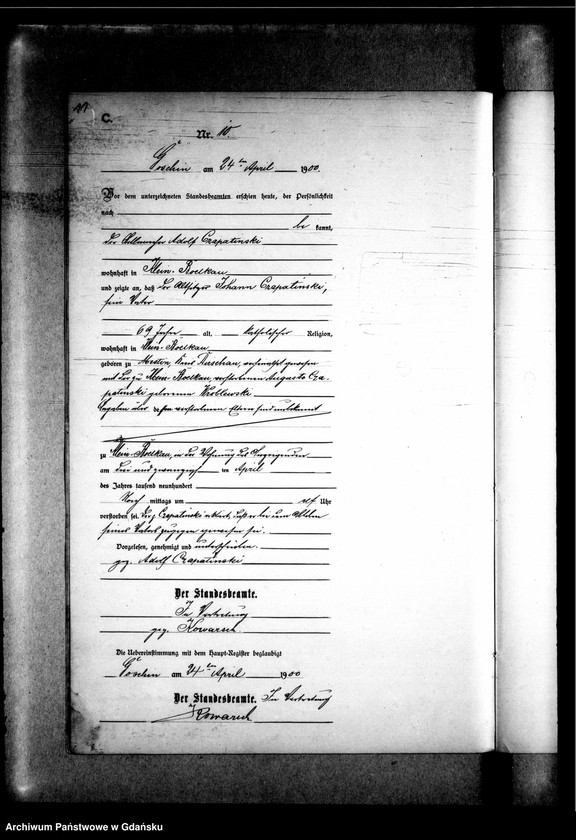 C.
Nr. 10
Goschin am 24ten April 1900.
Vor dem unterzeichneten Standesbeamten erschien heute, der Persönlichkeit
nach
be kannt,
der Adolf Czapalinski
wohnhaft in Klein-Roellkau
und zeigte an, daß der Altsitzer Johann Czapalinski,
sein Vater
69 Jahre alt, katholischer Religion,
wohnhaft in Klein-Roellkau
geboren zu Kreis Dirschau, verheirathet gewesen
mit der zu Klein-Roellkau verstorbenen Auguste Cza-
palinski geborenen Wroblewski
Angaben über dessen verstorbenen Eltern sind unbekannt
zu Klein-Roellkau, in der Wohnung des Anzeigenden
am drei und zwanzigsten im April
des Jahres tausend neunhundert
Nach mittags um elf Uhr
verstorben sei. Der p. Czapalinski erklärt, daß er bei dem Ableben
seines Vaters zugegen gewesen sei.
Vorgelesen, genehmigt und unterschrieben.
gez. Adolf Czapalinski
Der Standesbeamte.
In Vertretung
gez. Kowarsch.
Die Uebereinstimmung mit dem Haupt-Register beglaubigt
Goschin am 24ten April 1900
Der Standesbeamte. In Vertretung
Kowarsch
Archiwum Państwowe w Gdańsku